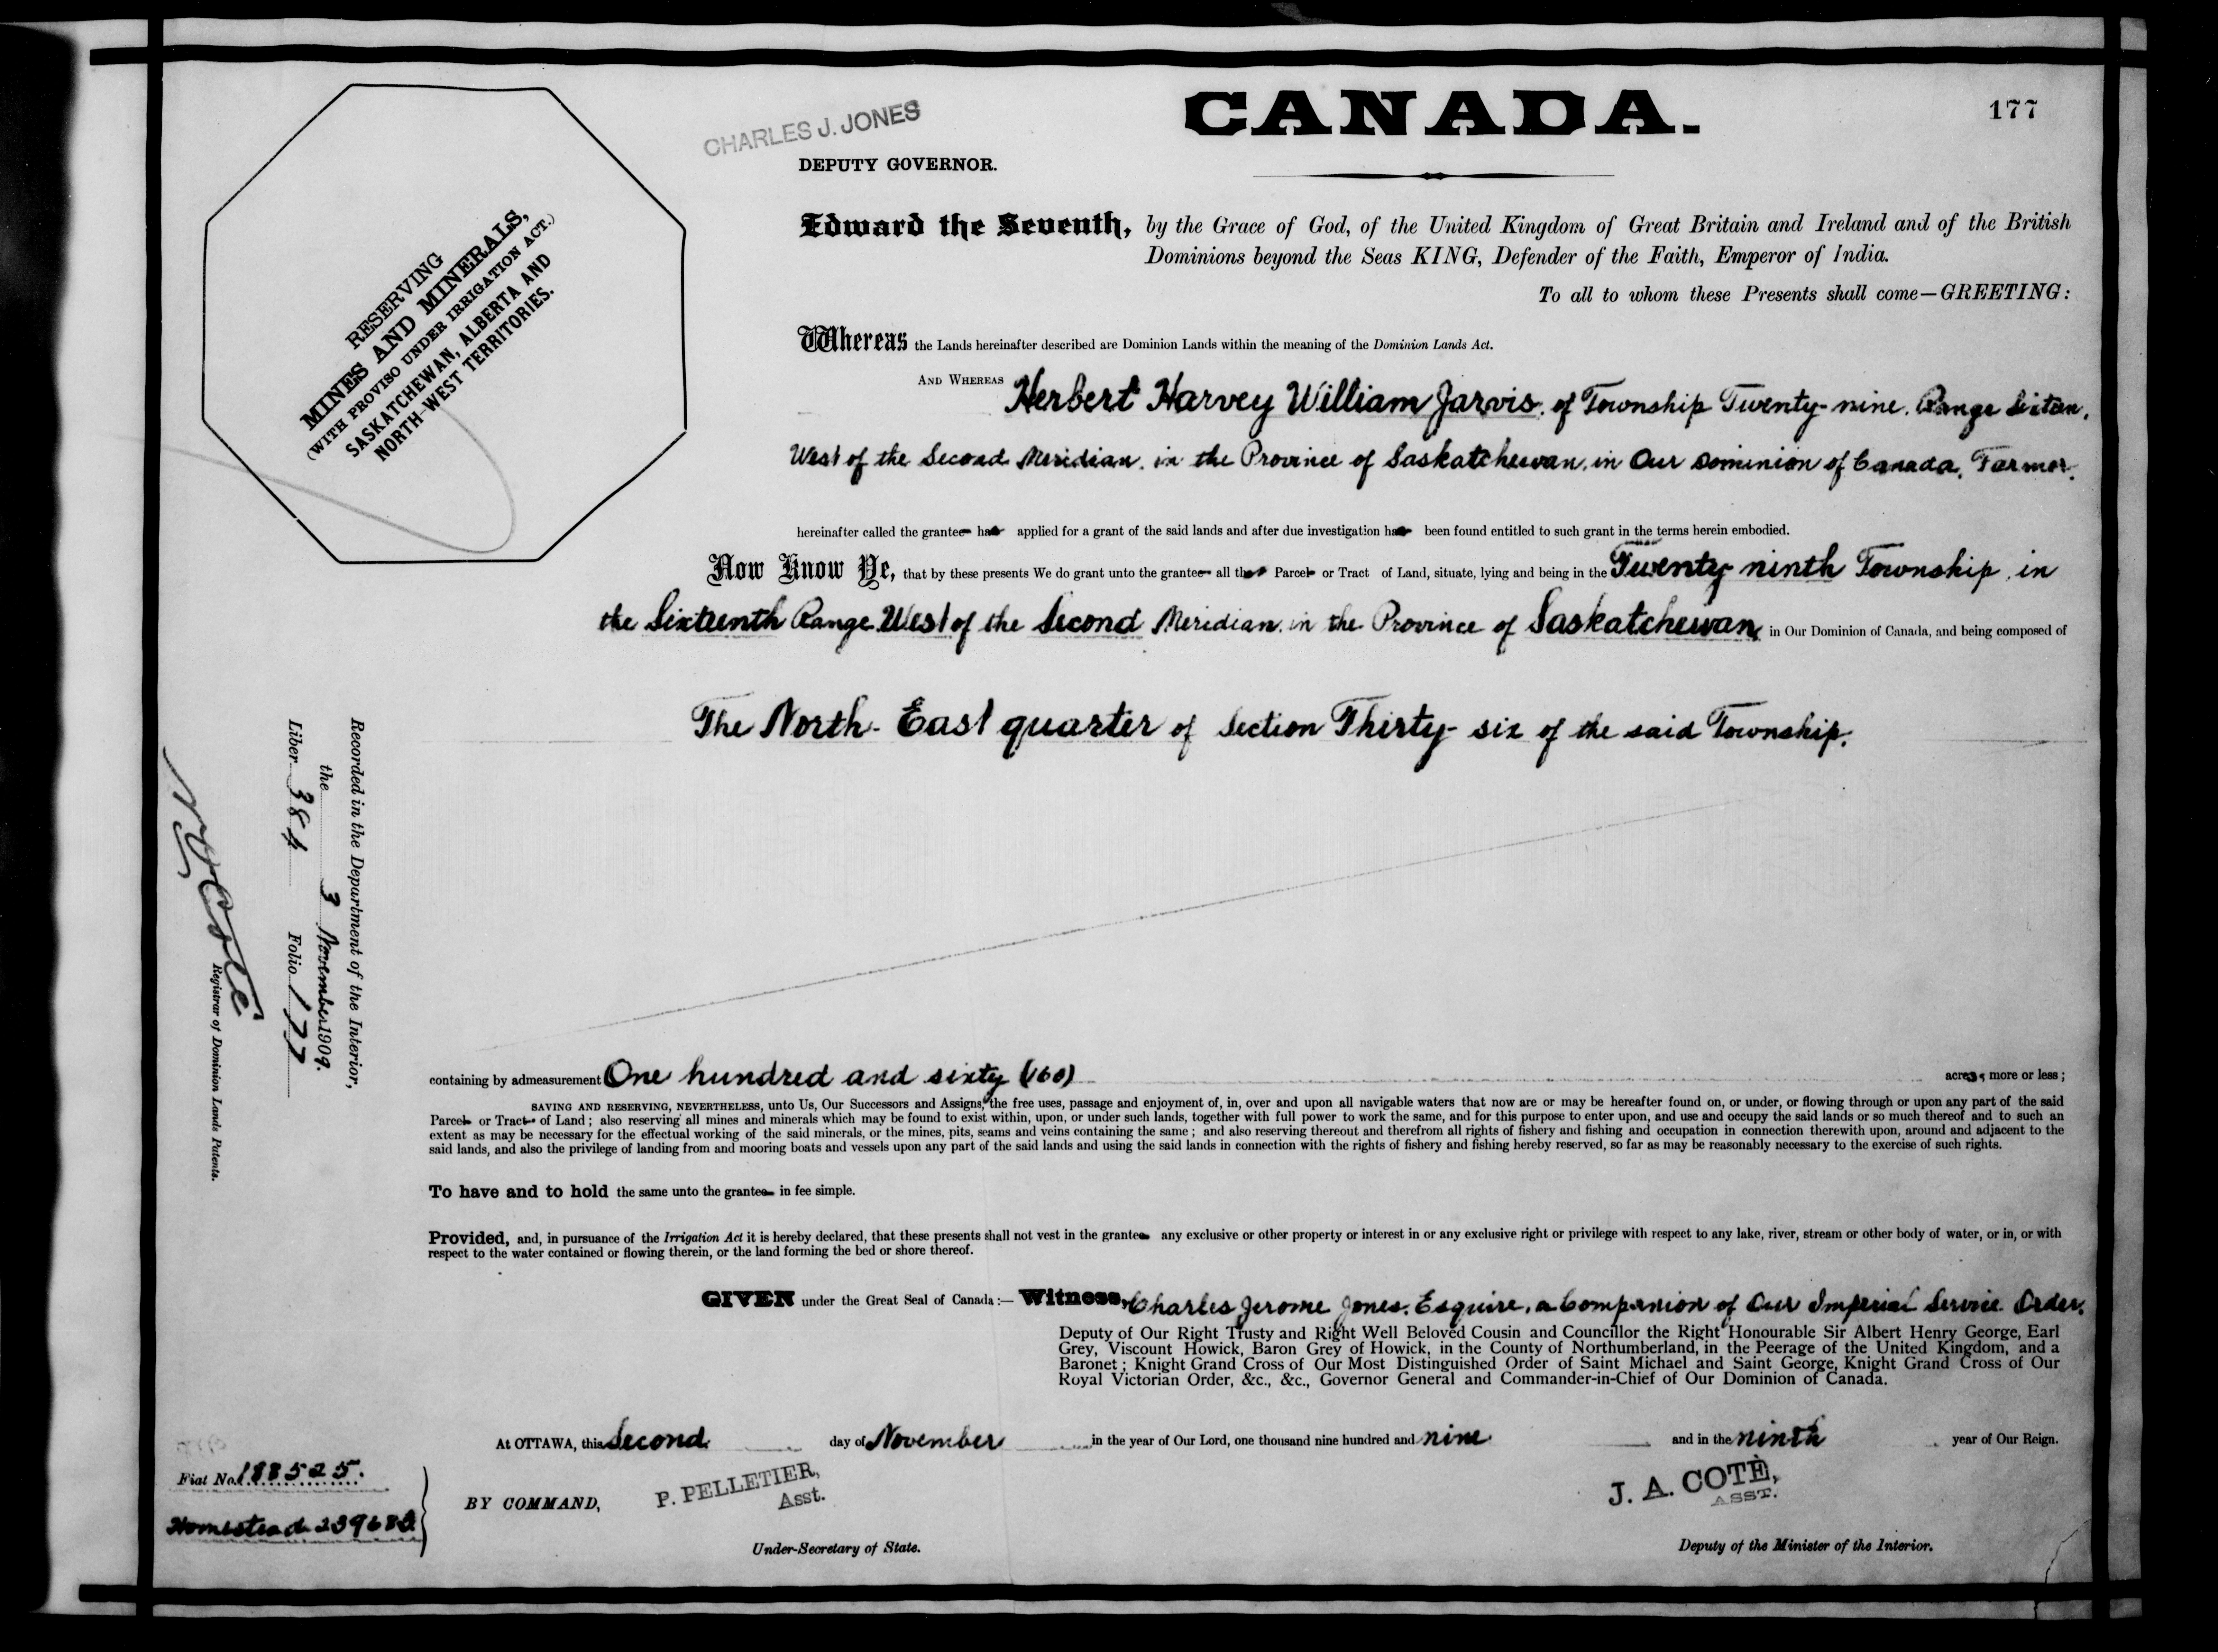 CANADA.
177
CHARLES J. JONES
DEPUTY GOVERNOR.
RESERVING
MINES AND MINERALS,
(WITH PROVISO UNDER IRRIGATION ACT.)
SASKATCHEWAN, ALBERTA AND
NORTH-WEST TERRITORIES.
Edward the Seventh, by the Grace of God, of the United Kingdom of Great Britain and Ireland and of the British
Dominions beyond the Seas KING, Defender of the Faith, Emperor of India.
To all to whom these Presents shall come—GREETING:
Whereas the Lands hereinafter described are Dominion Lands within the meaning of the Dominion Lands Act.
AND WHEREAS Herbert Harvey William Jarvis, of Township Twenty-nine, Range Sixteen,
West of the Second Meridian, in the Province of Saskatchewan, in Our Dominion of Canada, Farmer.
hereinafter called the grantee has applied for a grant of the said lands and after due investigation has been found entitled to such grant in the terms herein embodied.
Now Know Ye, that by these presents We do grant unto the grantee all that Parcel or Tract of Land, situate, lying and being in the Twenty ninth Township, in
the Sixteenth Range West of the Second Meridian, in the Province of Saskatchewan, in Our Dominion of Canada, and being composed of
The North-East quarter of Section Thirty-six of the said Township.
Recorded in the Department of the Interior,
the 3 November 1909.
Liber 384 Folio 177
N. O. Coté
Registrar of Dominion Lands Patents.
containing by admeasurement One hundred and sixty (160) acres, more or less;
SAVING AND RESERVING, NEVERTHELESS, unto Us, Our Successors and Assigns, the free uses, passage and enjoyment of, in, over and upon all navigable waters that now are or may be hereafter found on, or under, or flowing through or upon any part of the said
Parcel or Tract of Land; also reserving all mines and minerals which may be found to exist within, upon, or under such lands, together with full power to work the same, and for this purpose to enter upon, and use and occupy the said lands or so much thereof and to such an
extent as may be necessary for the effectual working of the said minerals, or the mines, pits, seams and veins containing the same; and also reserving thereout and therefrom all rights of fishery and fishing and occupation in connection therewith upon, around and adjacent to the
said lands, and also the privilege of landing from and mooring boats and vessels upon any part of the said lands and using the said lands in connection with the rights of fishery and fishing hereby reserved, so far as may be reasonably necessary to the exercise of such rights.
To have and to hold the same unto the grantee in fee simple.
Provided, and, in pursuance of the Irrigation Act it is hereby declared, that these presents shall not vest in the grantee any exclusive or other property or interest in or any exclusive right or privilege with respect to any lake, river, stream or other body of water, or in, or with
respect to the water contained or flowing therein, or the land forming the bed or shore thereof.
GIVEN under the Great Seal of Canada:— Witness, Charles Jerome Jones, Esquire, a Companion of Our Imperial Service Order,
Deputy of Our Right Trusty and Right Well Beloved Cousin and Councillor the Right Honourable Sir Albert Henry George, Earl
Grey, Viscount Howick, Baron Grey of Howick, in the County of Northumberland, in the Peerage of the United Kingdom, and a
Baronet; Knight Grand Cross of Our Most Distinguished Order of Saint Michael and Saint George, Knight Grand Cross of Our
Royal Victorian Order, &c., &c., Governor General and Commander-in-Chief of Our Dominion of Canada.
At OTTAWA, this Second day of November in the year of Our Lord, one thousand nine hundred and nine and in the ninth year of Our Reign.
Fiat No. 188525.
Homestead
BY COMMAND,
P. PELLETIER,
Asst.
Under-Secretary of State.
J. A. COTÈ,
ASST.
Deputy of the Minister of the Interior.